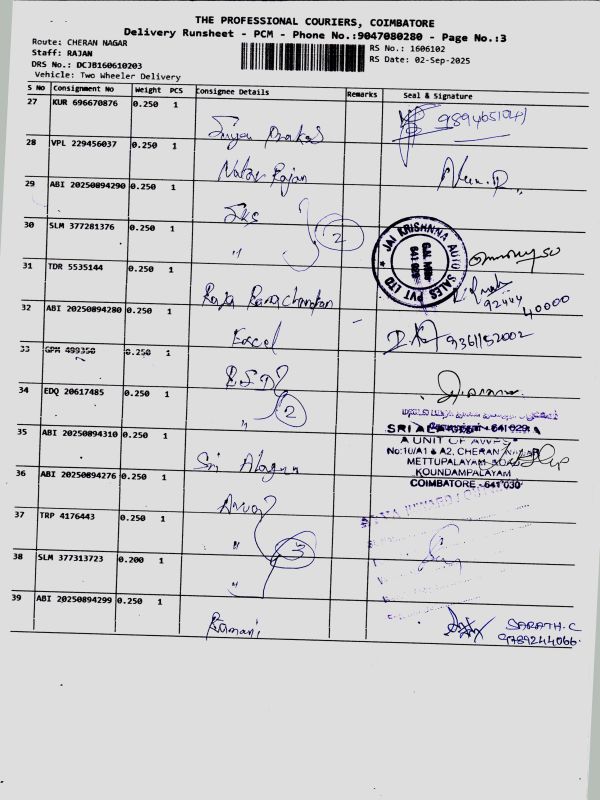 THE PROFESSIONAL COURIERS, COIMBATORE
Delivery Runsheet - PCM - Phone No.:9047080280 - Page No.:3
Route: CHERAN NAGAR
RS No.: 1606102
Staff: RAJAN
RS Date: 02-Sep-2025
DRS No.: DCJB160610203
Vehicle: Two Wheeler Delivery
S No Consignment No Weight PCS Consignee Details Remarks Seal & Signature
27 KUR 696670876 0.250 1
28 VPL 229456037 0.250 1 Rajan
29 ABI 20250894290 0.250 1 SKS
30 SLM 377281376 0.250 1 " 2
JAI KRISHNNA AUTO SALES PVT LTD
31 TDR 5535144 0.250 1 Raja Ramachandran 92444 40000
32 ABI 20250894280 0.250 1 Excel 9361152002
33 GPM 499350 0.250 1
34 EDQ 20617485 0.250 1 " 2
35 ABI 20250894310 0.250 1 Sri Alagun
641 029
A UNIT OF
No:10/A1 & A2, CHERAN NAGAR
METTUPALAYAM ROAD
KOUNDAMPALAYAM
COIMBATORE - 641 030
36 ABI 20250894276 0.250 1
37 TRP 4176443 0.250 1 " 3
38 SLM 377313723 0.200 1 "
39 ABI 20250894299 0.250 1 Ramani SARATH.C
9789244066